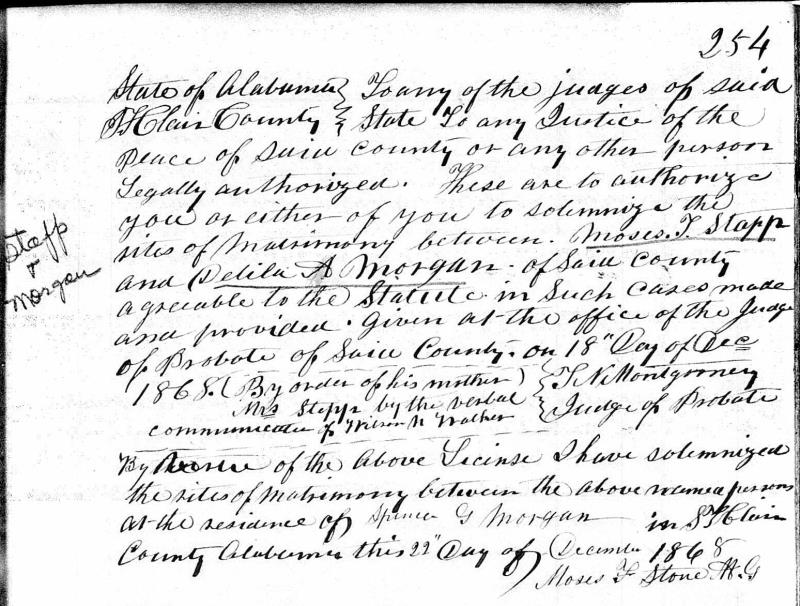 254
State of Alabama } To any of the judges of said
St Clair County } State To any Justice of the
Peace of said county or any other person
Legally authorized. These are to authorize
you or either of you to solemnize the
rites of Matrimony between. Moses. T. Stapp
and Delila A Morgan. of Said county
agreeable to the Statute in Such cases made
and provided. Given at the office of the Judge
of Probate of Said County. on 18" Day of Dec
1868. (By order of his mother) } T. N. Montgomery
Mrs Stepp by the verbal } Judge of Probate
of Wilson N Walker
Stapp
&
Morgan
By of the above Licinse I have solemnized
the rites of matrimony between the above named persons
at the residence of Spencer G Morgan in St Clair
County Alabama this 22" Day of December 1868
Moses F Stone